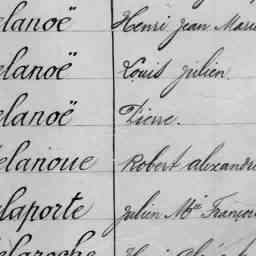 elanoë Henri Jean Marie
elanoë Louis Julien.
elanoë Pierre.
elanoue Robert Alexandre
elaporte Julien Mie François
elaroche